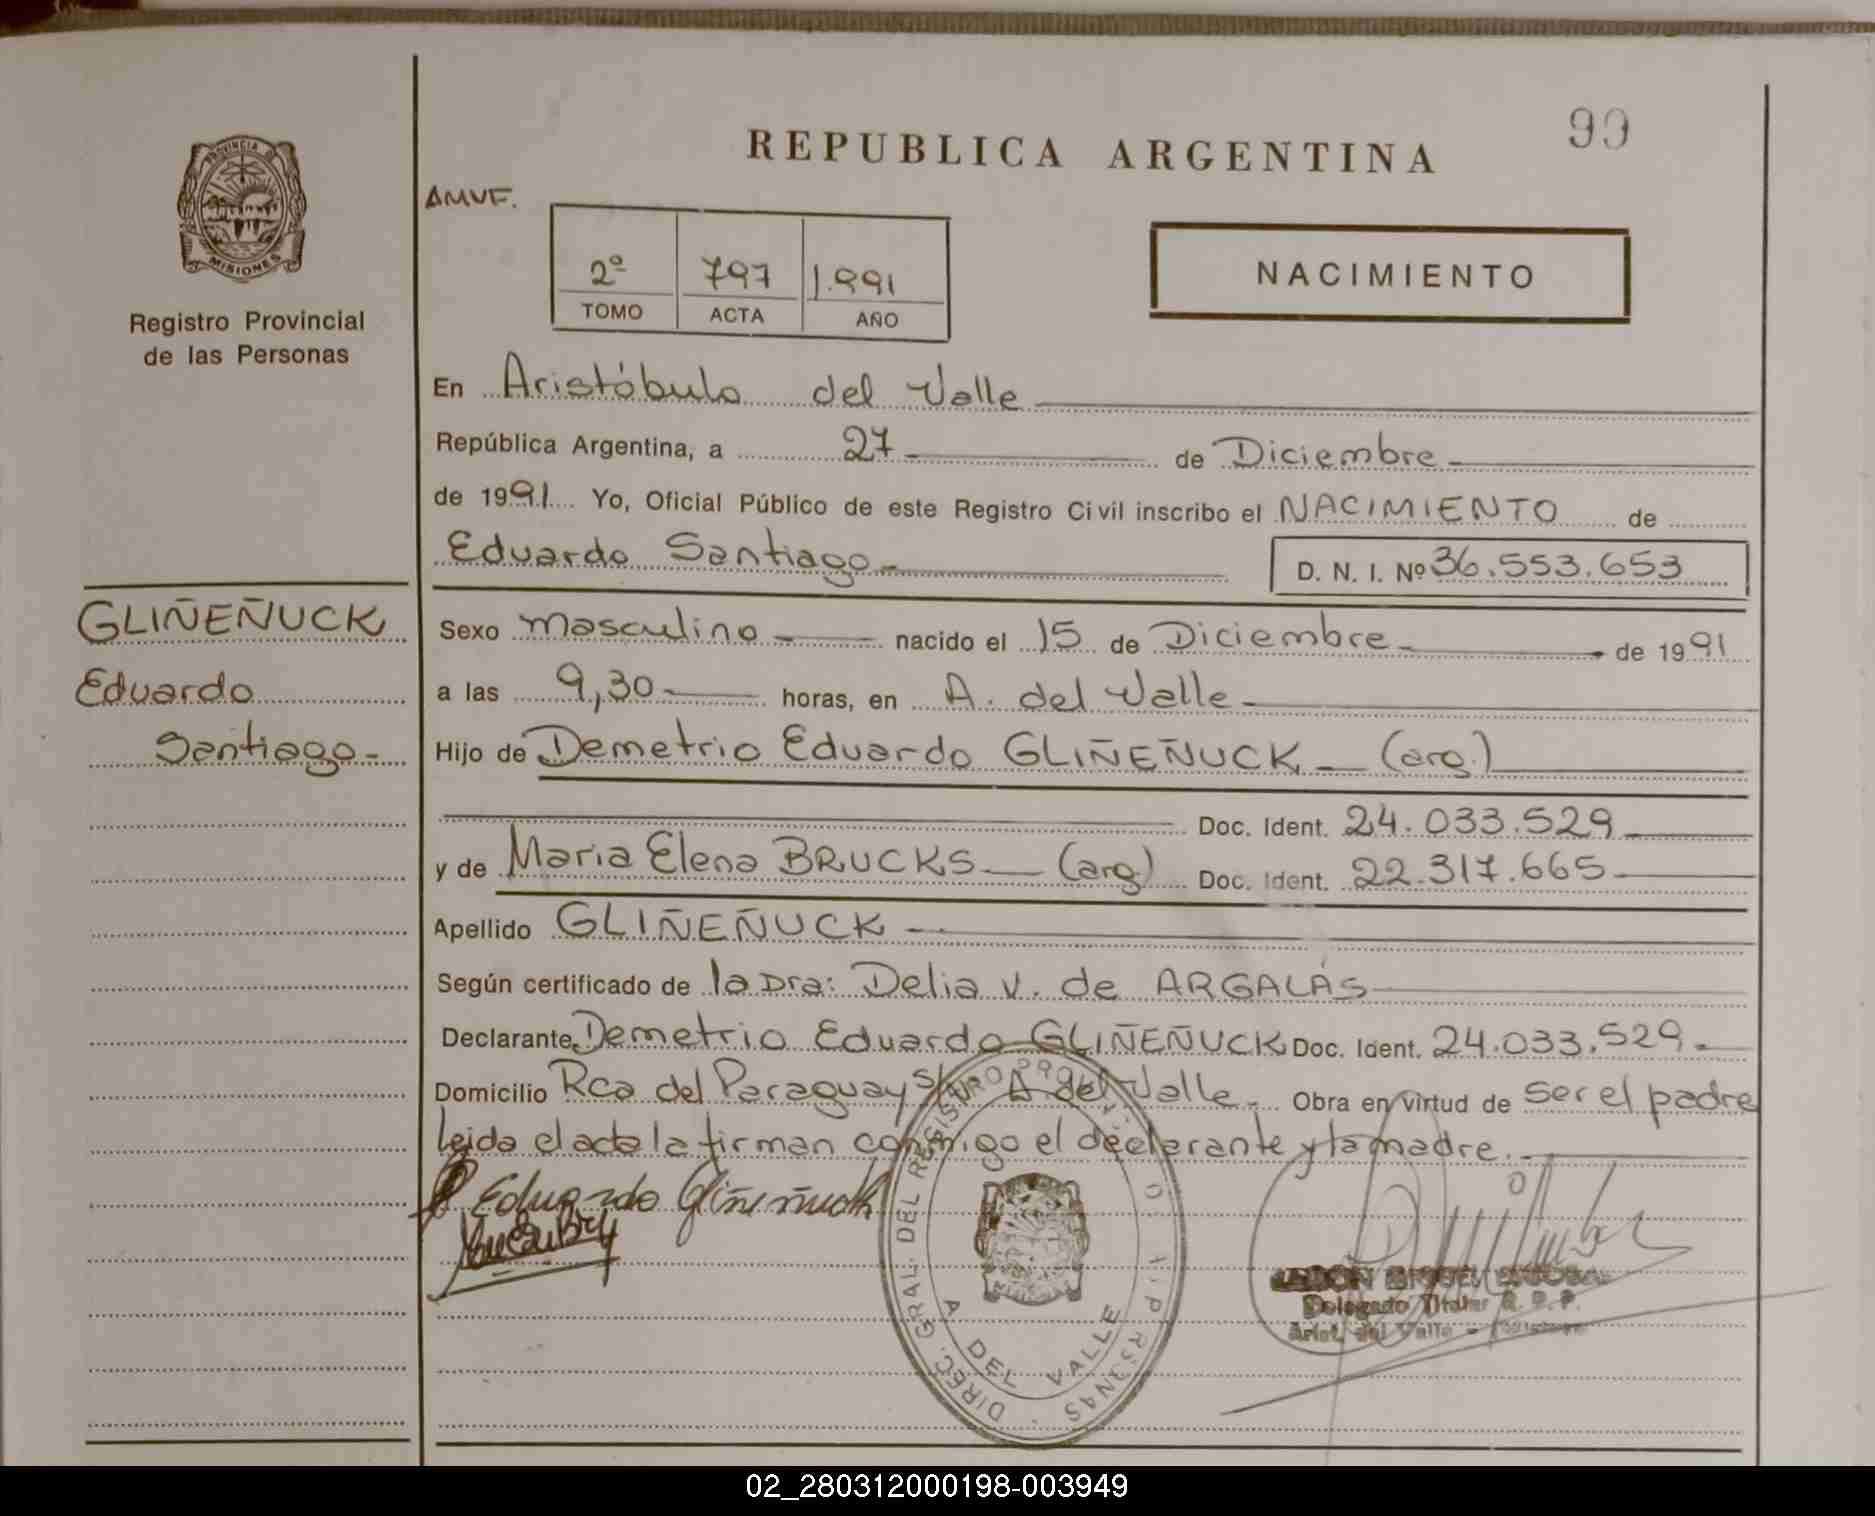 99
REPUBLICA ARGENTINA
PROVINCIA DE
MISIONES
Registro Provincial
de las Personas
AMVF.
2º 797 1.991
TOMO ACTA AÑO
NACIMIENTO
En Aristóbulo del Valle
República Argentina, a 27 de Diciembre
de 1991 Yo, Oficial Público de este Registro Civil inscribo el NACIMIENTO de
Eduardo Santiago D. N. I. Nº 36.553.653
GLIÑEÑUCK
Eduardo
Santiago
Sexo masculino nacido el 15 de Diciembre de 1991
a las 9,30 horas, en A. del Valle
Hijo de Demetrio Eduardo GLIÑEÑUCK (arg.)
Doc. Ident. 24.033.529
y de Maria Elena BRUCKS (arg) Doc. Ident. 22.317.665
Apellido GLIÑEÑUCK
Según certificado de la Dra: Delia V. de ARGALÁS
Declarante Demetrio Eduardo GLIÑEÑUCK Doc. Ident. 24.033.529
Domicilio Rca del Paraguay s/n A del Valle Obra en virtud de ser el padre
leida el acta la firman conmigo el declarante y la madre.
Eduardo Gliñeñuck
DIREC. GRAL. DEL REGISTRO
A DEL VALLE
Delegado Titular R. P. P.
Arist. del Valle
02_280312000198-003949